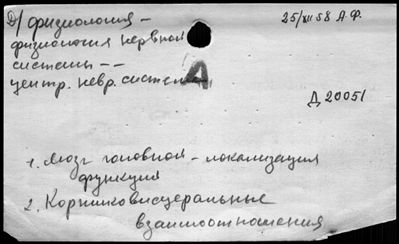 Д/ физиология –
физиология нервной
системы --
центр. невр. система
25/XII 58 А.Ф.
А
Д 20051
1. Мозг головной – локализация
функция
2. Кортиковисцеральные
взаимоотношения